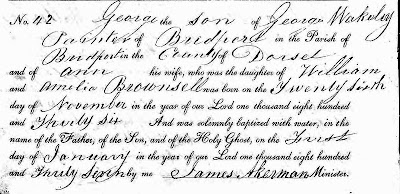 No. 42 George the Son of George Wakeley
Painter of Bridport in the Parish of
Bridport in the County of Dorset
and of Ann his wife, who was the daughter of William
and Amelia Brownsell was born on the Twenty Sixth
day of November in the year of our Lord one thousand eight hundred
and Thirty Six And was solemnly baptized with water, in the
name of the Father, of the Son, and of the Holy Ghost, on the First
day of January in the year of our Lord one thousand eight hundred
and Thirty Seven by me James Akerman Minister.